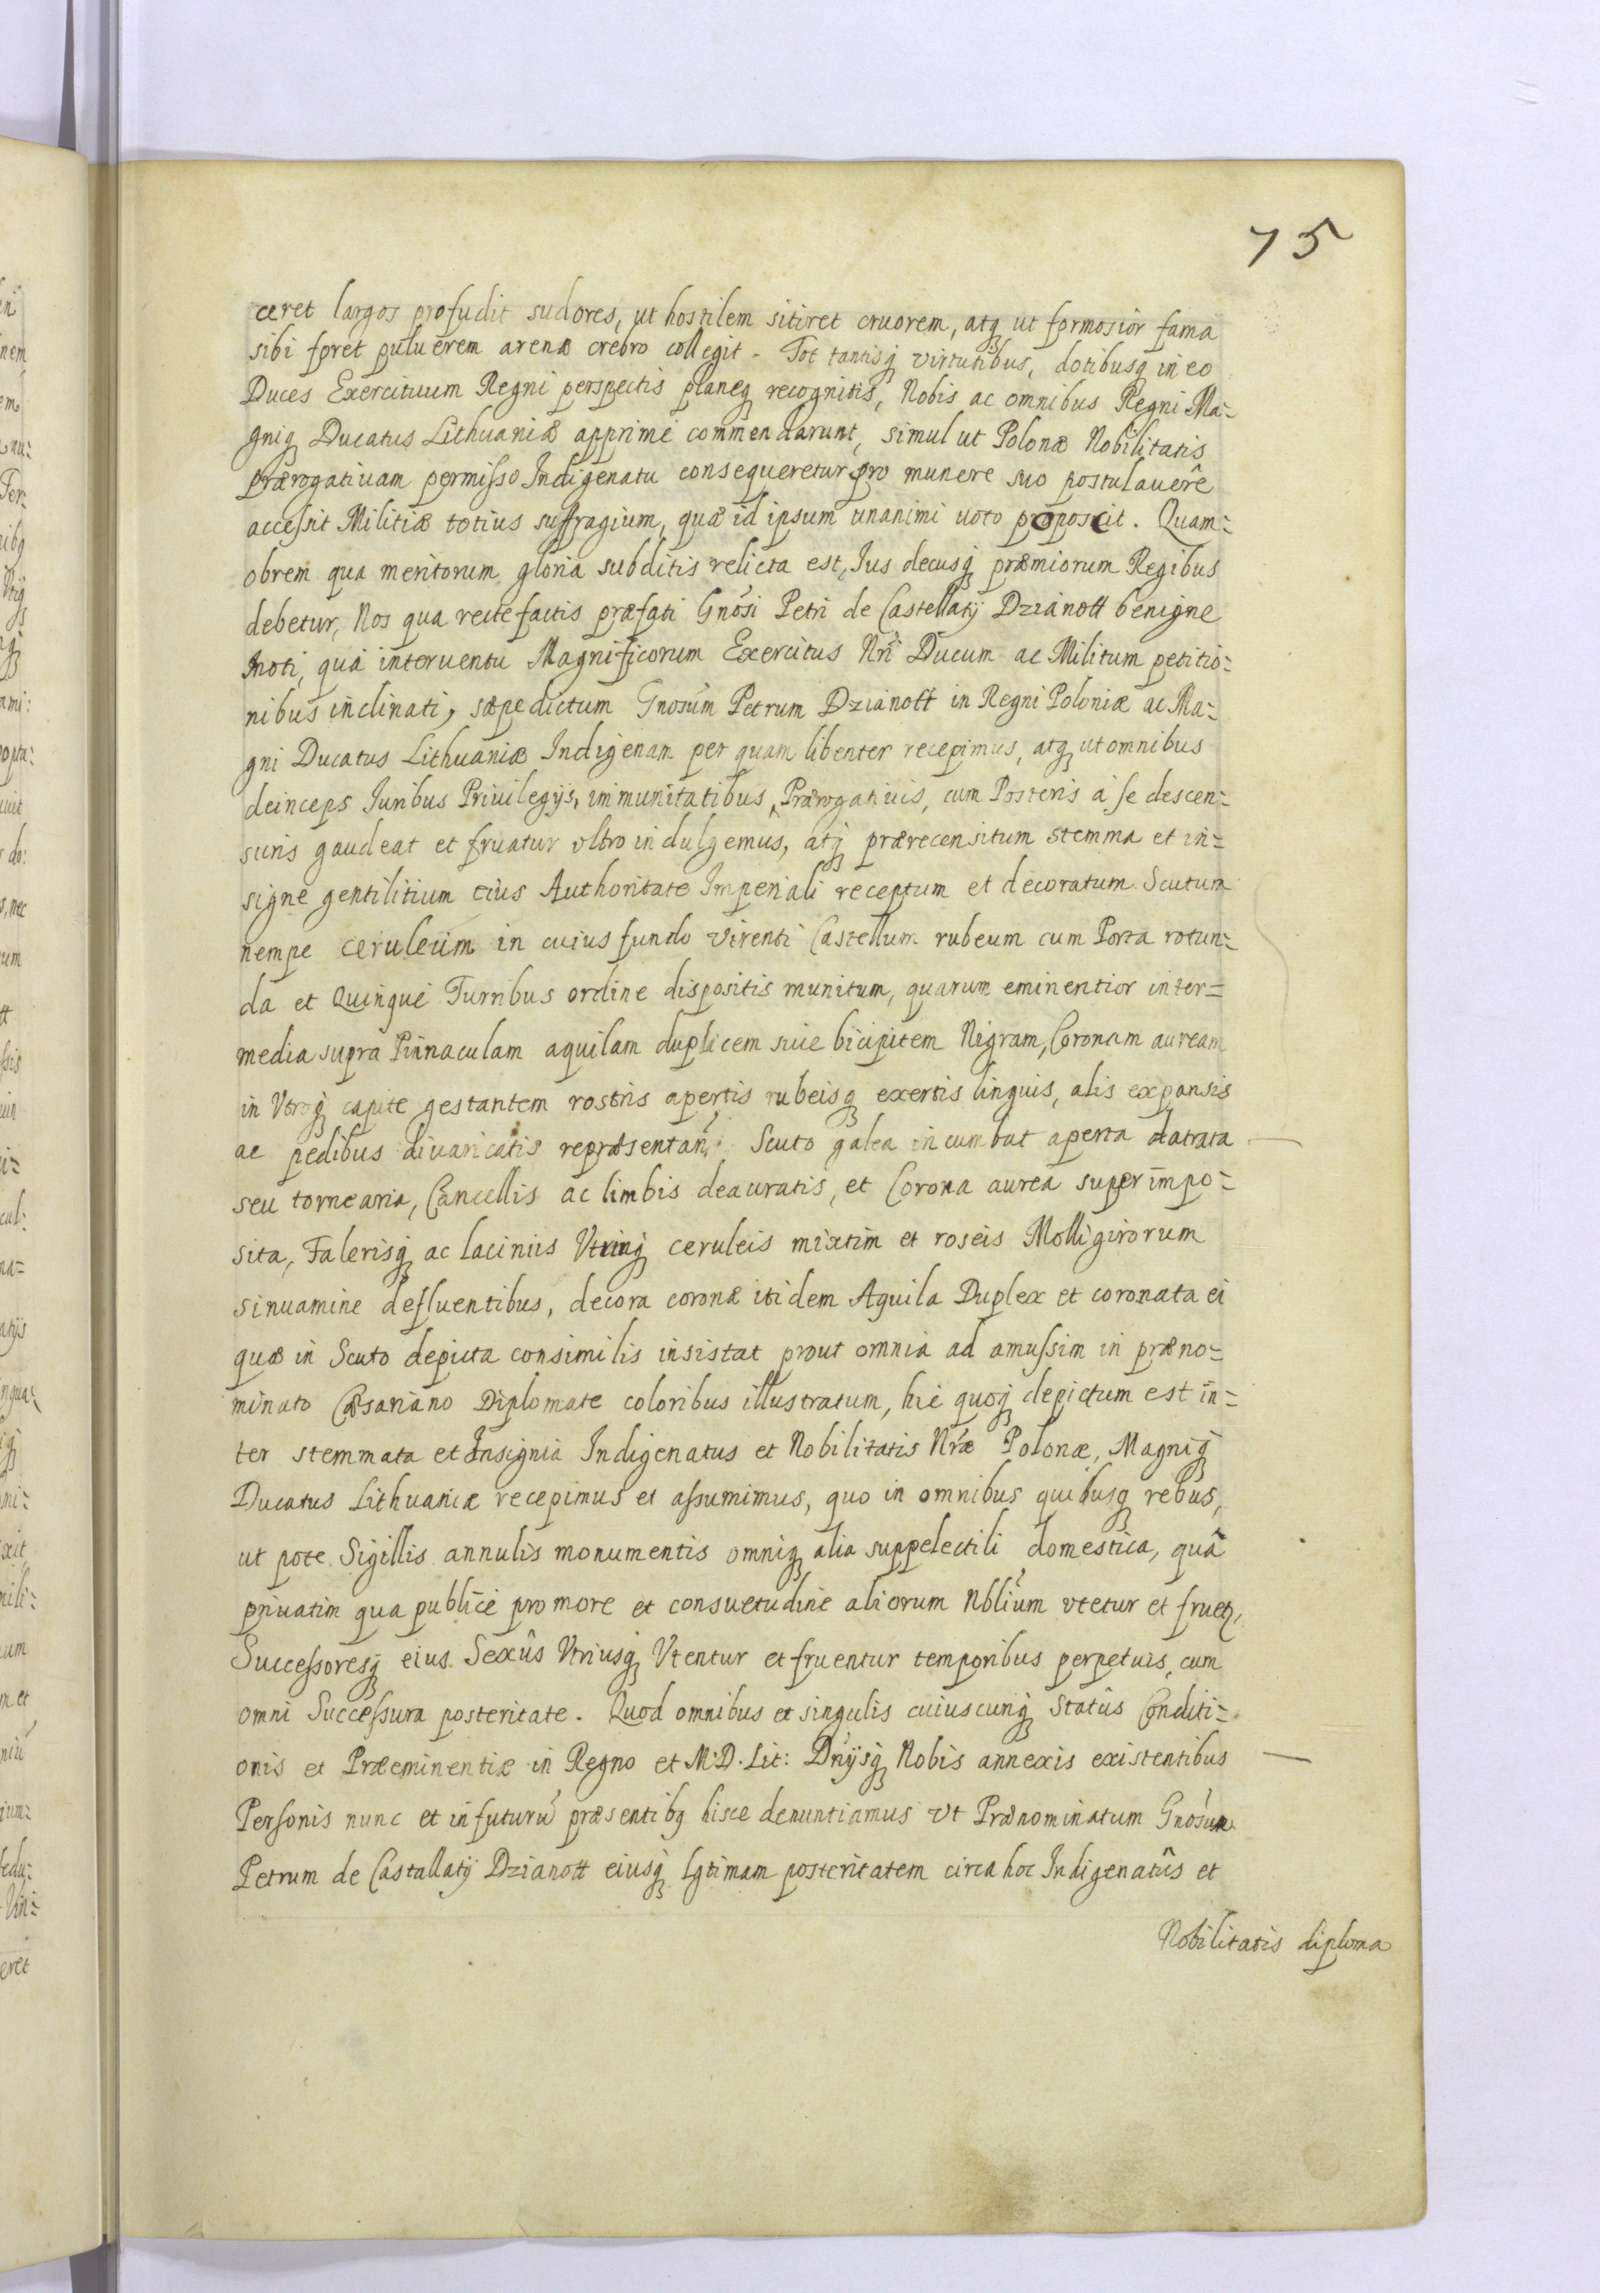 75
ceret largos profudit sudores, ut hostilem sitiret cruorem, atq ut formosior fama
sibi foret puluerem arenæ crebro collegit. Tot tantisq virtutibus, dotibusq in eo
Duces Exercituum Regni perspectis planeq recognitis, Nobis ac omnibus Regni Ma=
gniq Ducatus Lithuaniæ apprimé commendarunt, simul ut Polonæ Nobilitatis
Prærogatiuam permisso Indigenatu consequeretur pro munere suo postulauêre
accessit Militiæ totius suffragium, quæ id ipsum unanimi uoto proposcit. Quam=
obrem qua meritorum gloria subditis relicta est, Ius decusq præmiorum Regibus
debetur, Nos qua recte factis præfati Gnósi Petri de Castellatÿ Dzianott benigne
moti, quá interuentu Magnificorum Exercitus Nri Ducum ac Militum petitio=
nibus inclinati, sæpedictum Gnosúm Petrum Dzianott in Regni Poloniæ ac Ma=
gni Ducatus Lithuaniæ Indigenam per quam libenter recepimus, atq ut omnibus
deinceps Iuribus Priuilegÿs, immunitatibus, Prærogatiuis, cum Posteris á se descen=
suris gaudeat et fruatur vltro indulgemus, atq prærecensitum stemma et in=
signe gentilitium eius Authoritate Imperiali receptum et decoratum Scutum
nempe ceruleum in cuius fundo virenti Castellum rubeum cum Porta rotun=
da et Quinque Turribus ordine dispositis munitum, quarum eminentior inter=
media supra Pinnaculam aquilam duplicem siue bicipitem Nigram, Coronam auream
in Vtroq capite gestantem rostris apertis rubeisq exertis linguis, alis expansis
ac pedibus diuaricatis repræsentan, Scuto galea incumbat aperta clatrata
seu tornearia, Cancellis ac limbis deauratis, et Corona aurea superimpo=
sita, Falerisq ac laciniis Vtrinq ceruleis mixtim et roseis Molligirorum
sinuamine defluentibus, decora coronæ itidem Aquila Duplex et coronata ei
quæ in Scuto depicta consimilis insistat prout omnia ad amussim in præno=
minato Cæsariano Diplomate coloribus illustratum, hic quoq depictum est in=
ter stemmata et Insignia Indigenatus et Nobilitatis Nræ Polonæ, Magniq
Ducatus Lithuaniæ recepimus et assumimus, quo in omnibus quibusq rebus,
ut pote Sigillis annulis monumentis omniq alia suppelectili domestica, quâ
priuatim qua publicé pro more et consuetudine aliorum Nblium vtetur et fruetr,
Successoresq eius Sexûs Vtriusq Vtentur et fruentur temporibus perpetuis, cum
omni Successura posteritate. Quod omnibus et singulis cuiuscunq Statûs Conditi=
onis et Præeminentiæ in Regno et M.D. Lit: Dnÿsq Nobis annexis existentibus
Personis nunc et in futurú præsentibq hisce denuntiamus vt Prænominatum Gnósum
Petrum de Castallatÿ Dzianott eiusq Lgtimam posteritatem circa hoc Indigenatûs et
Nobilitatis diploma